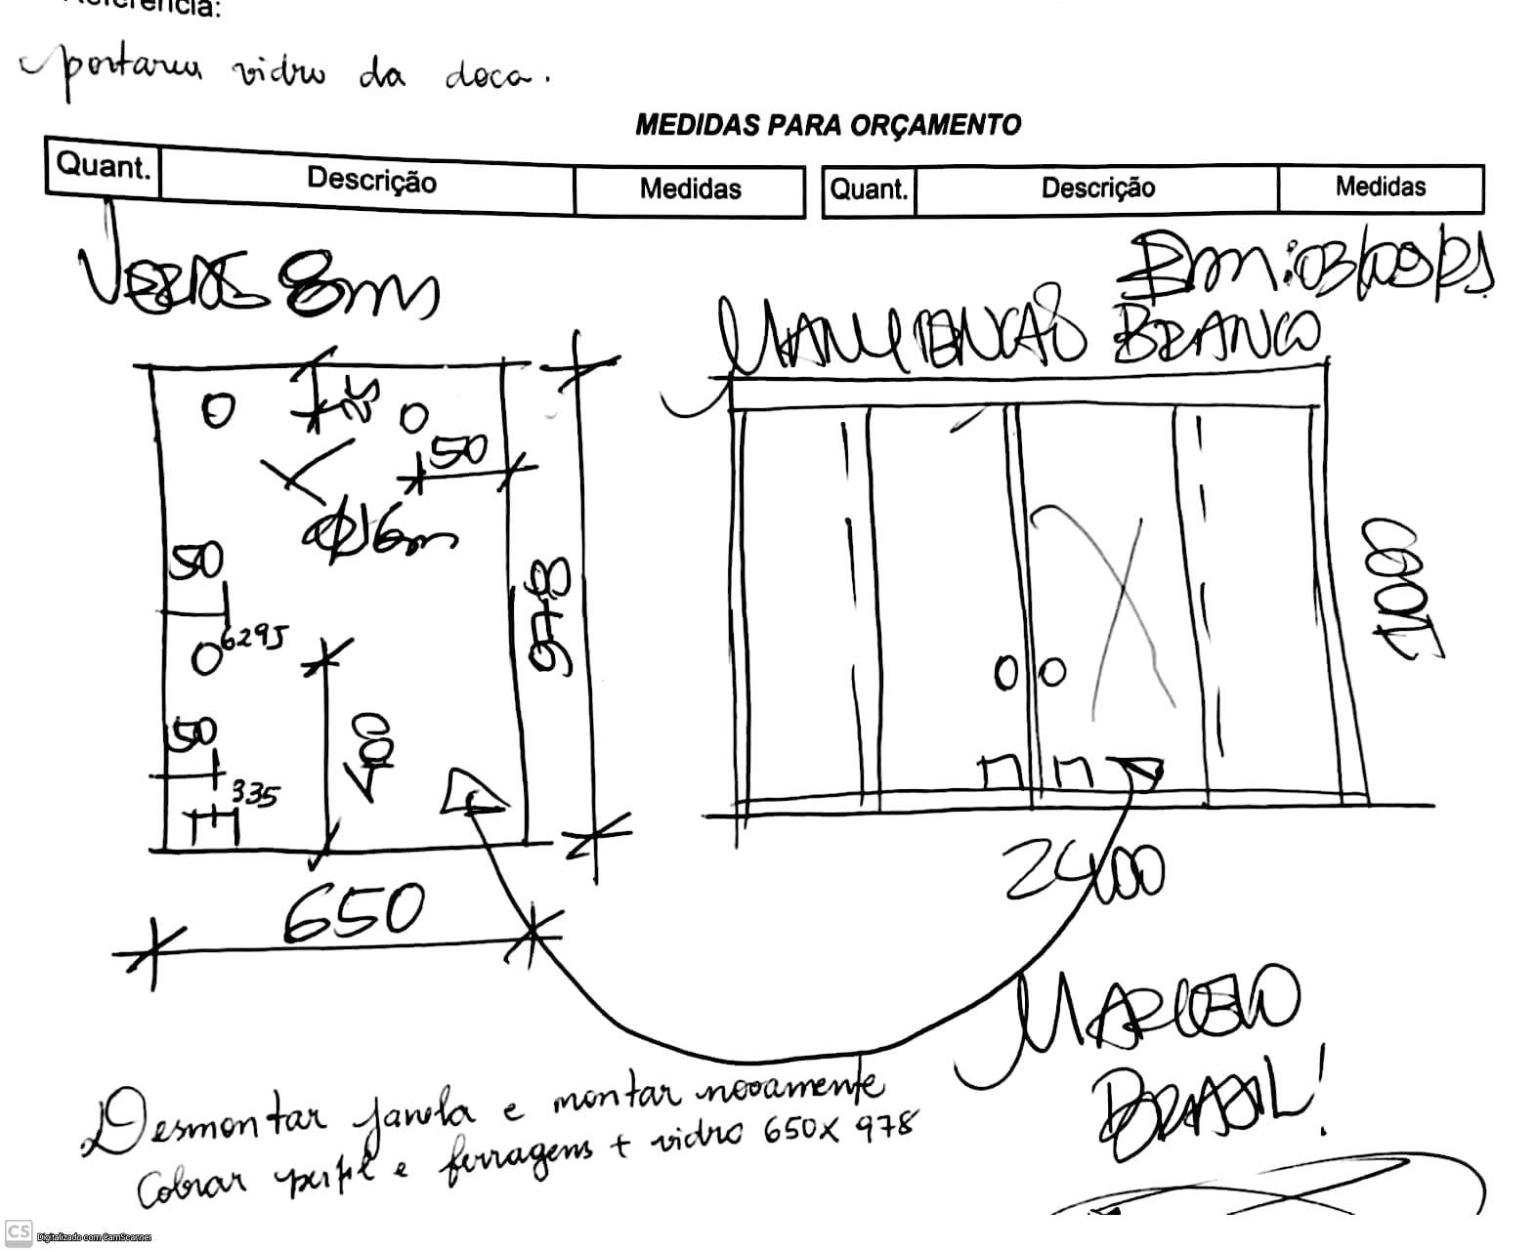 Referência:
portaria vidro da doca.
MEDIDAS PARA ORÇAMENTO
Quant. Descrição Medidas Quant. Descrição Medidas
8mm
BRANCO
25
50
Ø16mm
50
6295
978
400
50
335
650
1000
2400
MARCELO
BRASIL!
Desmontar janela e montar novamente
Cobrar perfil e ferragens + vidro 650X 978
CS Digitalizado com CamScanner